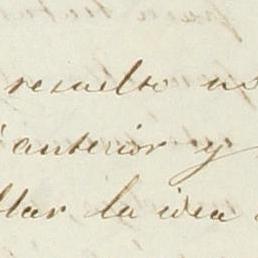 resuelto no
anterior y
llar la idea